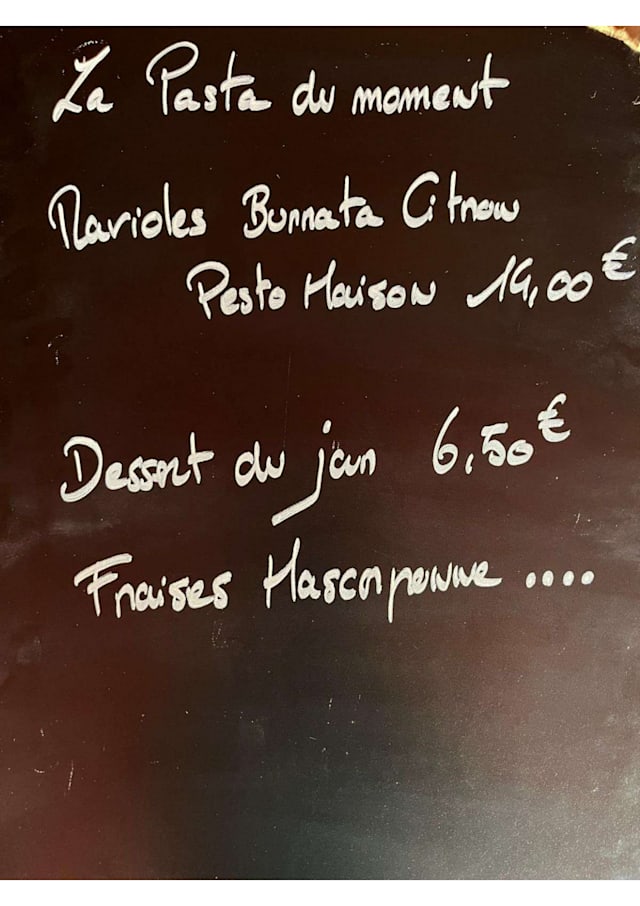 La Pasta du moment
Ravioles Burrata Citron
Pesto Maison 19,00 €
Dessert du jour 6,50 €
Fraises Mascarponne ....